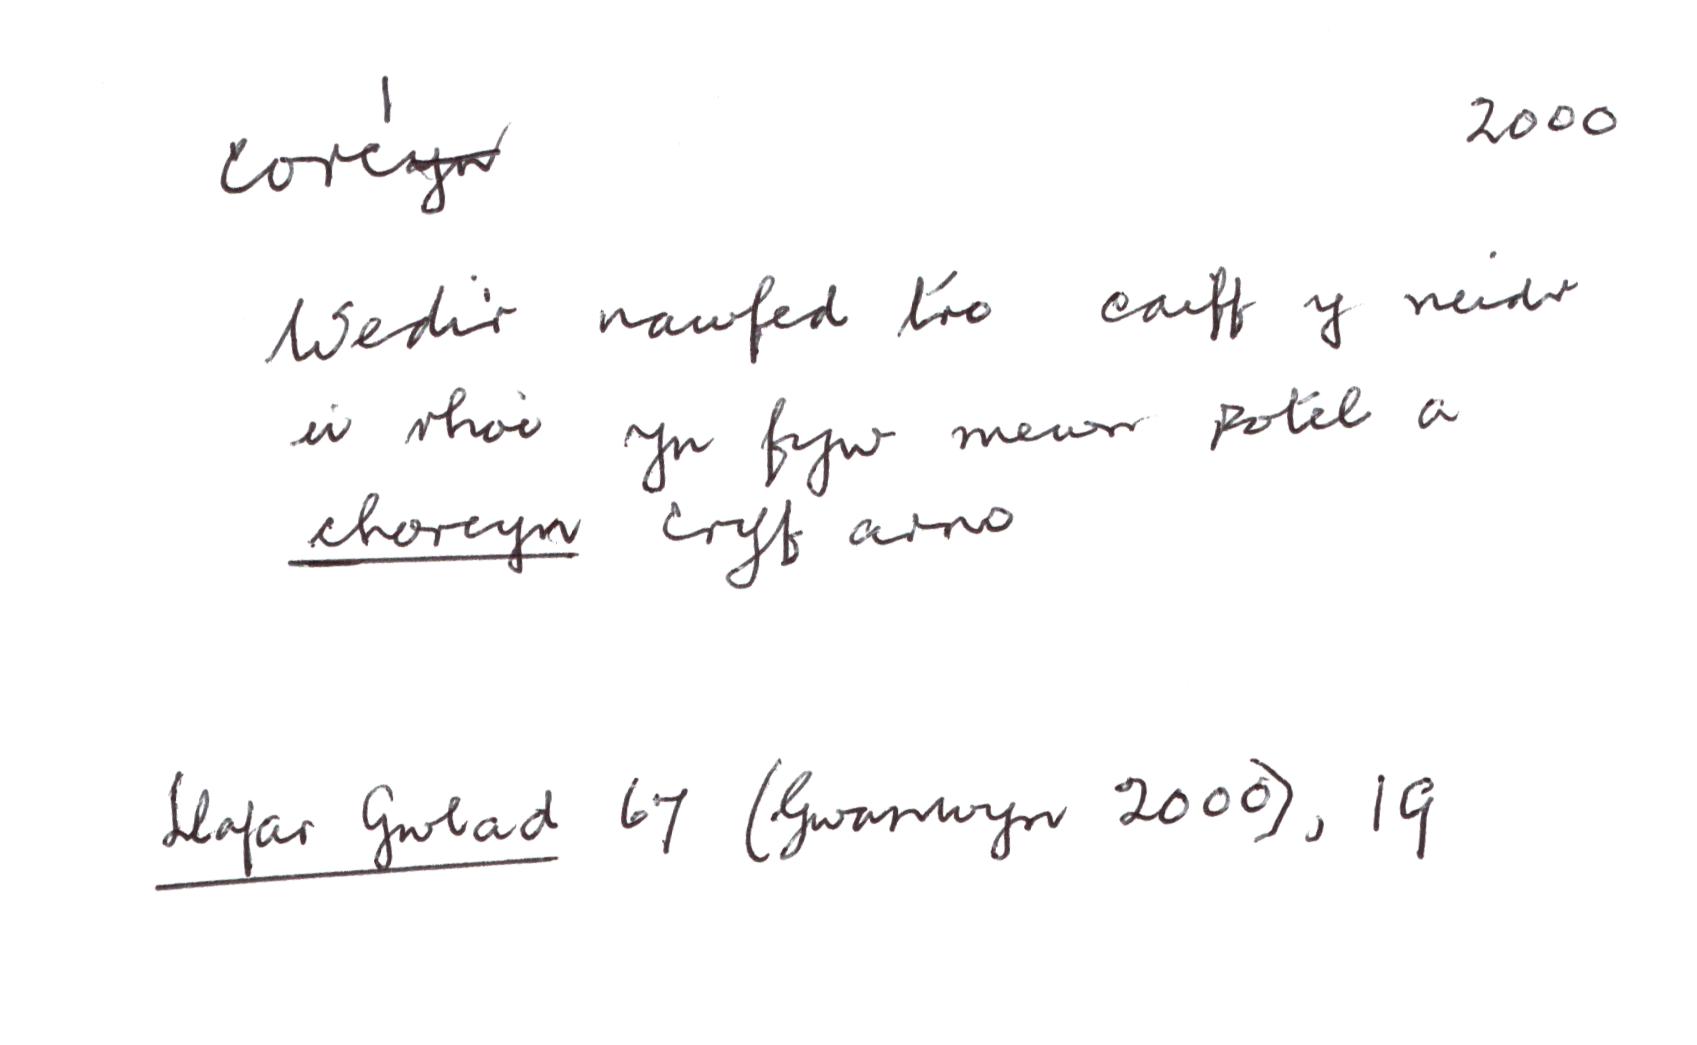 corcyn 2000
Wedi'r nawfed tro caiff y neidr
ei rhoi yn fyw mewn potel a
chorcyn cryf arno
Llafar Gwlad 67 (Gwanwyn 2000), 19